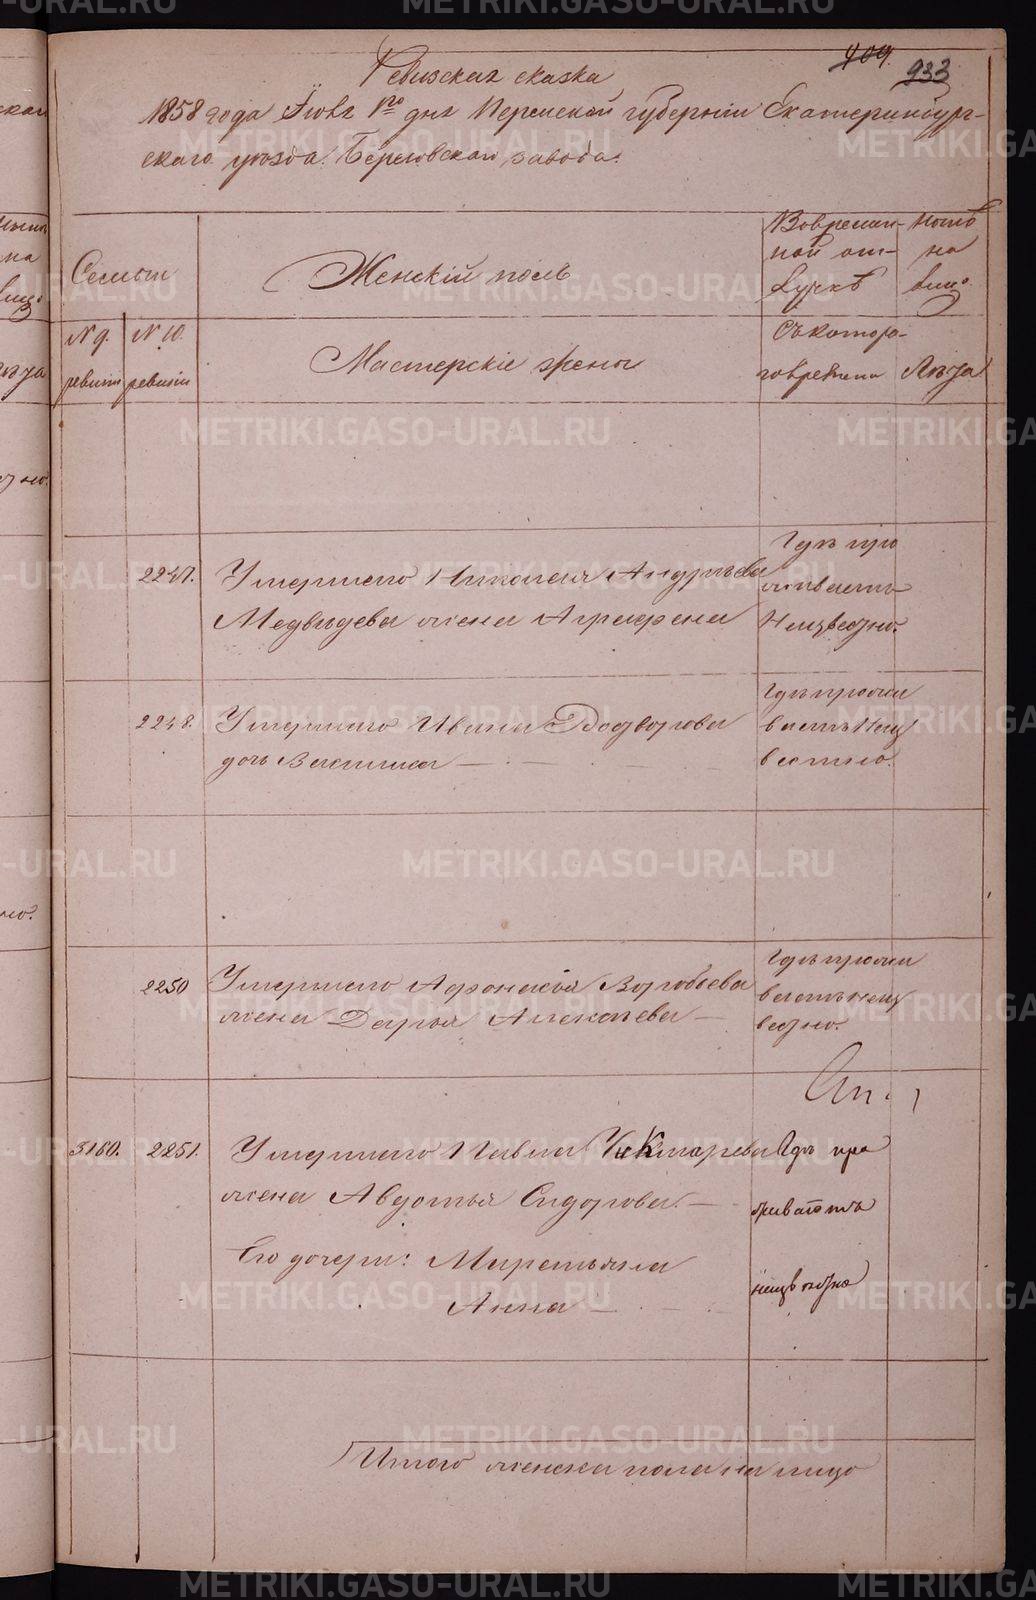 409.
933
Ревизская сказка
1858 года Июня 1го дня Пермской губернии Екатеринбург-
скаго уезда. Березовскаго завода.
Семьи
Женскій полъ
Вовремян-
ной от-
лучкѣ
Ныне
на
лицо
№ 9.
ревизіи
№ 10.
ревизіи
Мастерскіе жены
Съ котора-
го времени
Лѣта
2247.
Умершего Николая Андреева
Медведева жена Аграфена
Гдѣ про
живаетъ
Неизвестно.
2248.
Умершего Ивана
дочь Василиса
Гдѣ прожи
ваетъ Неиз
вестно.
2250
Умершего Афонасья Воробьева
жена Дарья Алексеева
Гдѣ прожи
ваетъ неиз
вестно.
3160.
2251.
Умершего Павла Чекмарева
жена Авдотья Сидорова.
Его дочери:
Анна
Гдѣ про
живаютъ
неизвестно
Итого женска пола на лицо
METRIKI.GASO-URAL.RU